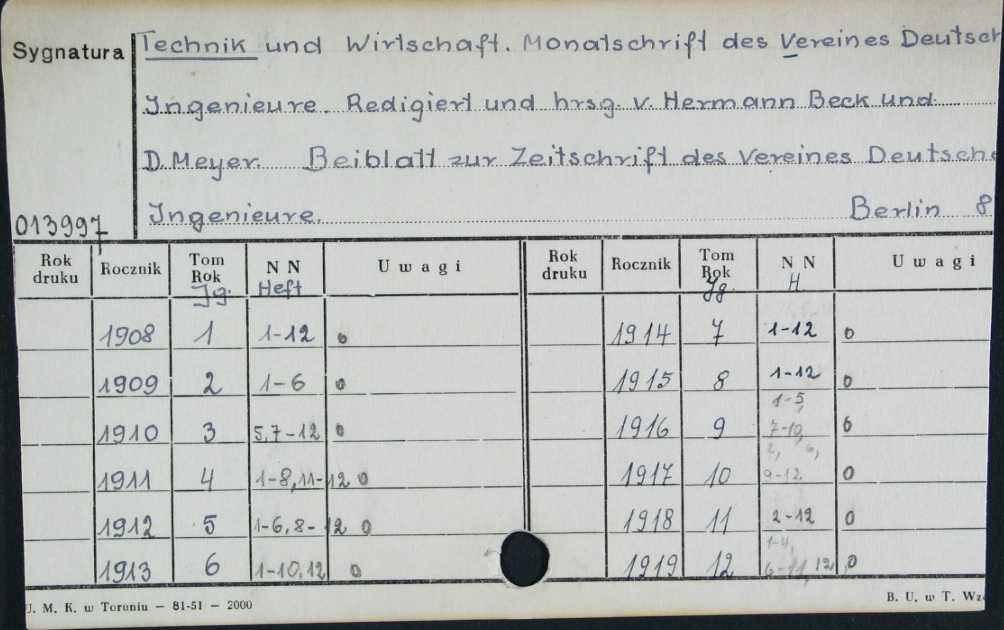 Sygnatura
Technik und Wirtschaft. Monatschrift des Vereines Deutsch
Ingenieure. Redigiert und hrsg. v. Hermann Beck und
D. Meyer. Beiblatt zur Zeitschrift des Vereines Deutsche
Ingenieure. Berlin 8
013997
Rok druku Rocznik Tom Rok Jg. N N Heft Uwagi Rok druku Rocznik Tom Rok Jg N N H. Uwagi
1908 1 1-12 0 1914 7 1-12 0
1909 2 1-6 0 1915 8 1-12 0
1910 3 5,7-12 0 1916 9 1-5, 7-10, 0
1911 4 1-8,11-12 0 1917 10 2, 6, 9-12 0
1912 5 1-6,8-12 0 1918 11 2-12 0
1913 6 1-10,12 0 1919 12 1-4, 6-11, 12, 0
U. M. K. w Toruniu — 81-51 — 2000 B. U. w T. Wz